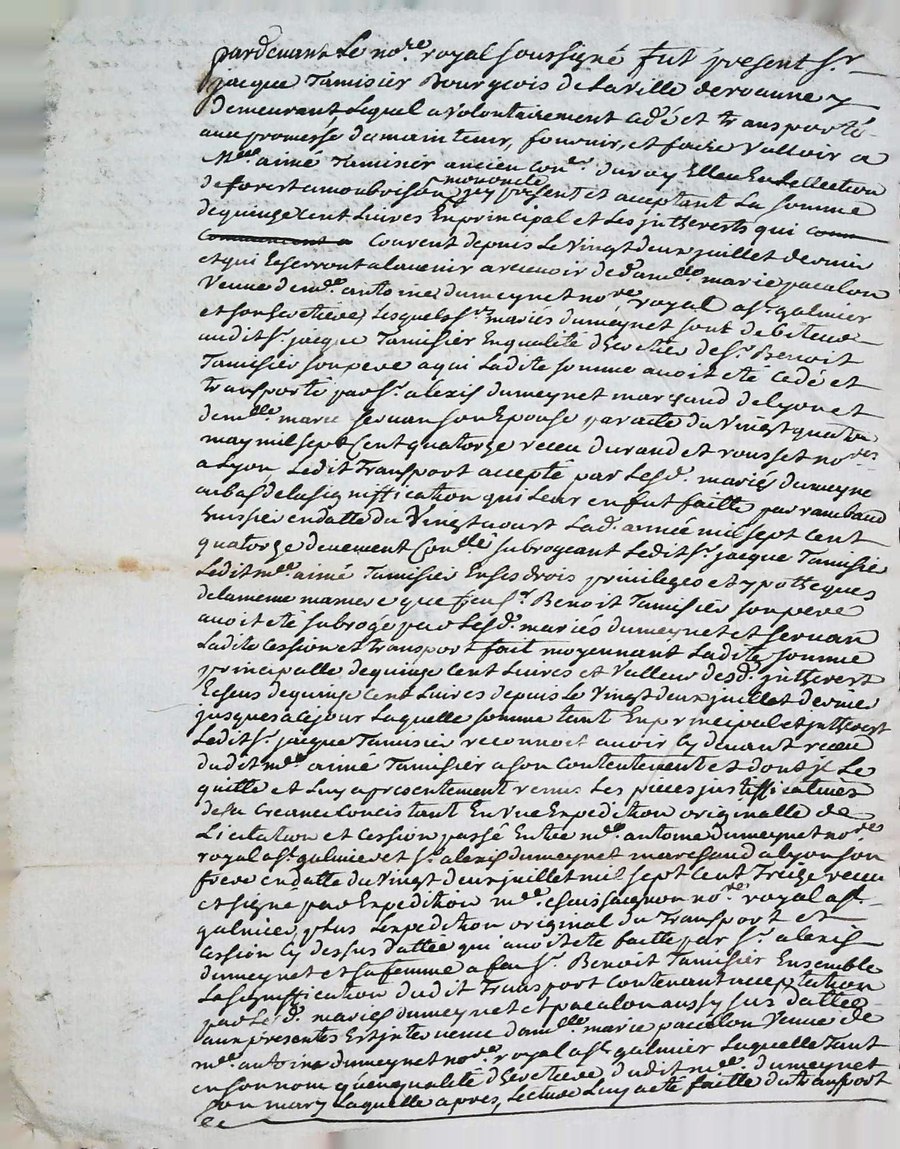 pardevant Le no.re royal soussigné fut present S.r
jacque Tamisier Bourgeois de La ville de roanne y
demeurant Lequel a volontairement cedé et transporté
avec promesse de maintenir, fournir, et faire valloir a
M.re aimé Tamisier ancien con.er du roy Elleu En Lellection
de forest a montbrison monerele jcy present et acceptant La somme
de quinze cent Livres En principal et Les jntherets qui cou
commencent a Courent depuis Le vingt deux juillet dernier
et qui Echerront a lavenir a recevoir de dam.lle marie pacalon
veuve de m.re antoine dumeynet no.re royal a S.t galmier
et son heretiere, Lesquels S.rs mariés dumeynet sont debiteurs
audit S.r jacque Tamisier En qualité dheretier de S.r Benoit
Tamisier son pere a qui Ladite somme avoit eté cedé et
transporté par S.r alexis dumeynet marchand de lyon et
de m.lle marie servan son Epouse par acte du vingt quatre
may mil sept Cent quatorze receu durand et rousset no.res
a Lyon Ledit Transport accepté par Lesd. mariés dumeyne
au bas de la signiffication qui Leur en fut faitte par rambaud
huissier en datte du vingt aoust Lad. année mil sept cent
quatorze duement Con.llé subrogeant Ledit S.r jacque Tamisie
Ledit m.re aimé Tamisier En ses drois privileges et ypotteques
de la meme maniere que feu S.r Benoit Tamisier son pere
avoit eté subrogé par Lesd. mariés dumeynet et servan
Ladite Cession et transport fait moyennant Ladite somme
principalle de quinze Cent Livres et valleur desd. jntherest
Echeus de quinze Cent Livres depuis Le vingt deux juillet dernier
jusques a Ce jour Laquelle somme tant En principal et jntherest
Ledit S.r jacque Tamisier reconnoit avoir Cy devant receu
dudit m.re aimé Tamisier a son Contentement et dont jl Le
quitte et Luy a presentement remis Les pieces justifficatives
de sa Creance Concistant En une Expedition originalle de
Licitation et Cession passé Entre m.re antoine dumeynet no.re
royal a S.t galmier et S.r alexis dumeynet marchand a lyon son
frere en datte du vingt deux juillet mil sept Cent Treize receu
et signé par Expedition m.re no.re royal a S.t
galmier, plus Lexpedition original du Transport et
Cession Cy dessus dattée qui avoit eté faitte par S.r alexis
dumeynet et sa femme a feu S.r Benoit Tamisier Ensemble
La signiffication dudit Transport Contenant acceptation
par Lesd. mariés dumeynet et pacalon aussy sus dattée
aux presentes Est jntervenue dam.lle marie pacalon veuve de
m.re antoine dumeynet no.re royal a S.t galmier Laquelle Tant
en son nom qu en qualité dheretiere dudit m.re dumeynet
son mary Laquelle apres, Lecture Luy a eté faitte du transport